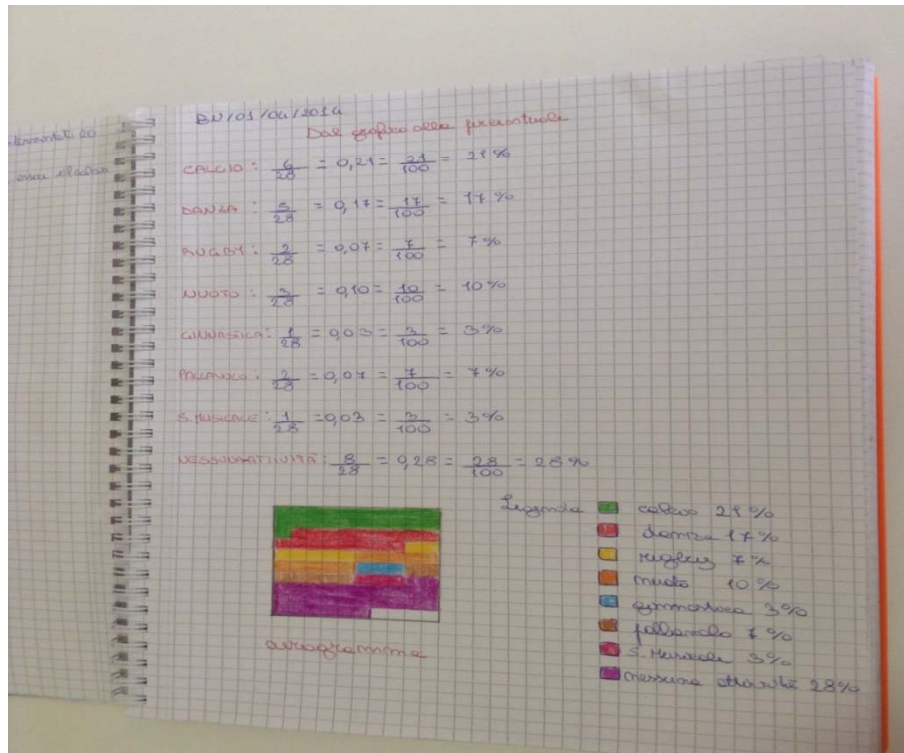 BN/01/04/2014
Dal grafico alla percentuale
CALCIO: 6/28 = 0,21 = 21/100 = 21%
DANZA: 5/28 = 0,17 = 17/100 = 17%
RUGBY: 2/28 = 0,07 = 7/100 = 7%
NUOTO: 3/28 = 0,10 = 10/100 = 10%
GINNASTICA: 1/28 = 0,03 = 3/100 = 3%
PALLAVOLO: 2/28 = 0,07 = 7/100 = 7%
S. MUSICALE: 1/28 = 0,03 = 3/100 = 3%
NESSUNA ATTIVITÀ: 8/28 = 0,28 = 28/100 = 28%
Legenda
calcio 21%
danza 17%
rugby 7%
nuoto 10%
ginnastica 3%
pallavolo 7%
S. Musicale 3%
nessuna attività 28%
aerogramma